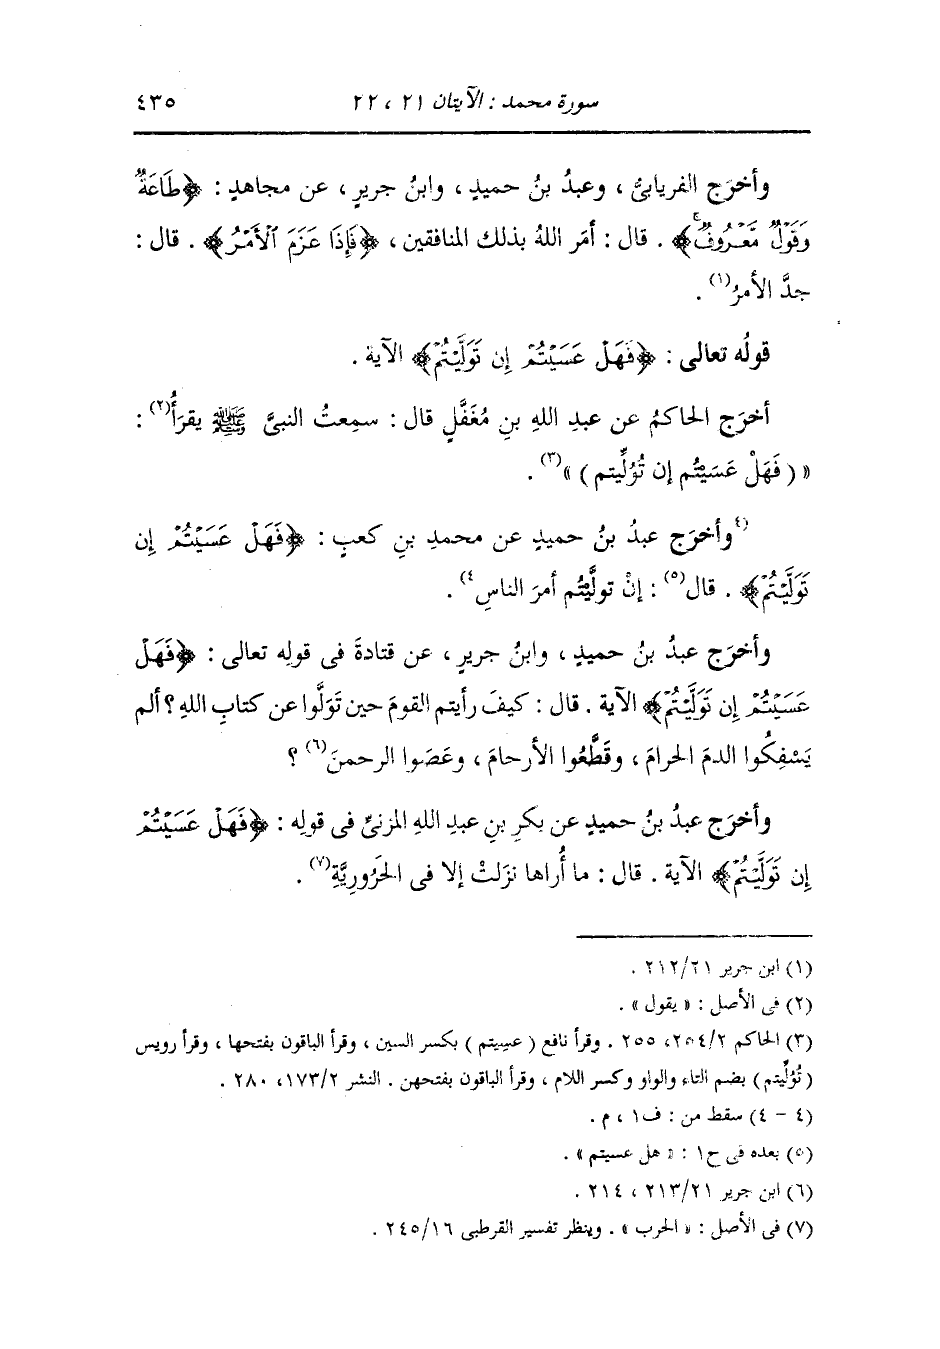 سورة محمد : الآيتان ٢١ ، ٢٢
٤٣٥
وأخرَج الفريابىُّ ، وعبدُ بنُ حميدٍ ، وابنُ جريرٍ ، عن مجاهدٍ : ﴿طَاعَةٌ
وَقَوْلٌ مَّعْرُوفٌ﴾ . قال : أمَر اللهُ بذلك المنافقين ، ﴿فَإِذَا عَزَمَ ٱلْأَمْرُ﴾ . قال :
جدَّ الأمرُ(١) .
قولُه تعالى : ﴿فَهَلْ عَسَيْتُمْ إِن تَوَلَّيْتُمْ﴾ الآية .
أخرَج الحاكمُ عن عبدِ اللهِ بنِ مُغَفَّلٍ قال : سمِعتُ النبىَّ ﷺ يقرَأُ(٢) :
« ( فَهَلْ عَسَيْتُم إن تُوُلِّيتم ) »(٣) .
(٤وأخرَج عبدُ بنُ حميدٍ عن محمدِ بنِ كعبٍ : ﴿فَهَلْ عَسَيْتُمْ إِن
تَوَلَّيْتُمْ﴾ . قال(٥) : إنْ تولَّيْتُم أمرَ الناسِ٤) .
وأخرَج عبدُ بنُ حميدٍ ، وابنُ جريرٍ ، عن قتادةَ فى قولِه تعالى : ﴿فَهَلْ
عَسَيْتُمْ إِن تَوَلَّيْتُمْ﴾ الآية . قال : كيفَ رأيتم القومَ حين تَوَلَّوا عن كتابِ اللهِ ؟ ألم
يَسْفِكُوا الدمَ الحرامَ ، وقَطَّعُوا الأرحامَ ، وعَصَوا الرحمنَ(٦) ؟
وأخرَج عبدُ بنُ حميدٍ عن بكرِ بنِ عبدِ اللهِ المزنىِّ فى قولِه : ﴿فَهَلْ عَسَيْتُمْ
إِن تَوَلَّيْتُمْ﴾ الآية . قال : ما أُراها نزَلتْ إلا فى الحَرُورِيَّةِ(٧) .
(١) ابن جرير ٢١/ ٢١٢ .
(٢) فى الأصل : « يقول » .
(٣) الحاكم ٢/ ٢٥٤، ٢٥٥ . وقرأ نافع ( عسِيتم ) بكسر السين ، وقرأ الباقون بفتحها ، وقرأ رويس
( تُوُلِّيتم ) بضم التاء والواو وكسر اللام ، وقرأ الباقون بفتحهن . النشر ٢/ ١٧٣، ٢٨٠ .
(٤ - ٤) سقط من : ف١ ، م .
(٥) بعده فى ح١ : « هل عسيتم » .
(٦) ابن جرير ٢١/ ٢١٣ ، ٢١٤ .
(٧) فى الأصل : « الحرب » . وينظر تفسير القرطبى ١٦/ ٢٤٥ .